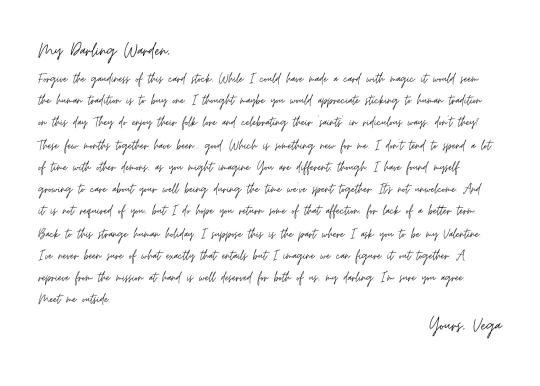 My Darling Warden,
Forgive the gaudiness of this card stock. While I could have made a card with magic it would seem
the human tradition is to buy one. I thought maybe you would appreciate sticking to human tradition
on this day. They do enjoy their folk lore and celebrating their 'saints' in ridiculous ways, don't they?
These few months together have been... good. Which is something new for me. I don't tend to spend a lot
of time with other demons, as you might imagine. You are different, though. I have found myself
growing to care about your well being during the time we've spent together. It's not unwelcome. And
it is not required of you, but I do hope you return some of that affection, for lack of a better term.
Back to this strange human holiday. I suppose this is the part where I ask you to be my Valentine.
I've never been sure of what exactly that entails but I imagine we can figure it out together. A
reprieve from the mission at hand is well deserved for both of us, my darling. I'm sure you agree.
Meet me outside.
Yours, Vega